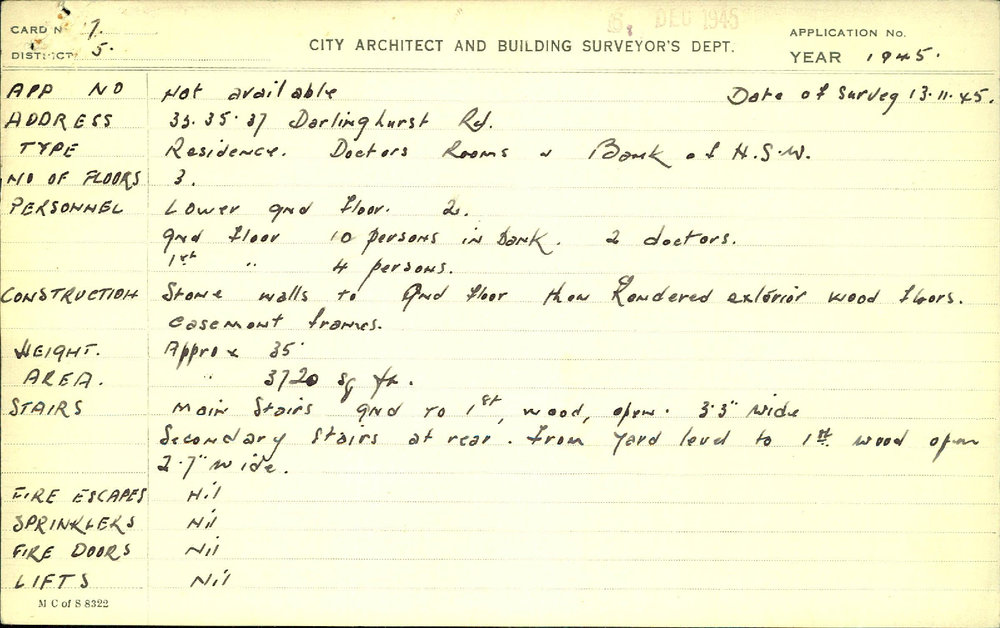 CARD No 7.
6. DEC 1945
APPLICATION No.
DISTRICT 5.
CITY ARCHITECT AND BUILDING SURVEYOR'S DEPT.
YEAR 1945.
APP NO Not available Date of Survey 13.11.45.
ADDRESS 33.35.37 Darlinghurst Rd.
TYPE Residence. Doctors Rooms & Bank of N.S.W.
NO OF FLOORS 3.
PERSONNEL Lower gnd floor. 2.
gnd floor 10 persons in Bank. 2 doctors.
1st " 4 persons.
CONSTRUCTION Stone walls to Gnd floor then Rendered exterior wood floors.
casement frames.
HEIGHT. Approx 35'
AREA. " 3720 sq ft.
STAIRS Main Stairs gnd to 1st, wood, open. 3'3" wide
Secondary Stairs at rear. From yard level to 1st wood open
2'7" wide.
FIRE ESCAPES Nil
SPRINKLERS Nil
FIRE DOORS Nil
LIFTS Nil
M C of S 8322